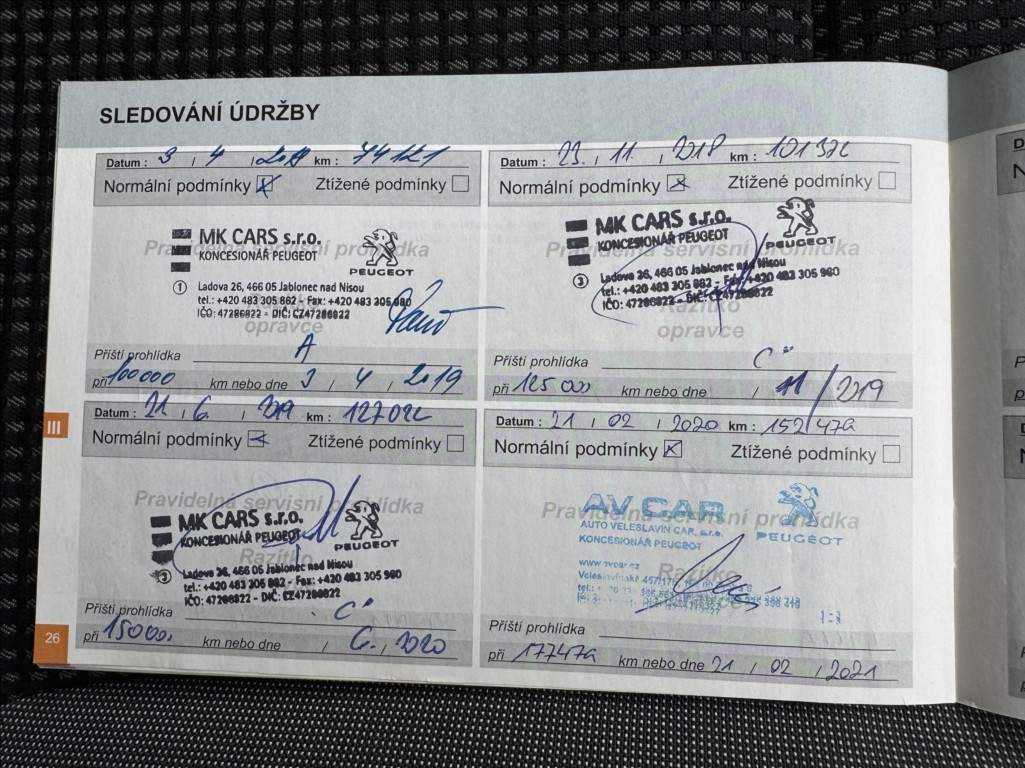 SLEDOVÁNÍ ÚDRŽBY
Datum : 3 / 4 / km :
Normální podmínky Ztížené podmínky
Pravidelná servisní prohlídka
MK CARS s.r.o.
KONCESIONÁŘ PEUGEOT
PEUGEOT
1 Ladova 26, 466 05 Jablonec nad Nisou
tel.: +420 483 305 862 - Fax: +420 483 305 960
IČO: 47286822 - DIČ: CZ47286822
Razítko
opravce
Příští prohlídka A
při 100000 km nebo dne 3 / 4 / 2019
Datum : 23. / 11. / 2018 km :
Normální podmínky Ztížené podmínky
Pravidelná servisní prohlídka
MK CARS s.r.o.
KONCESIONÁŘ PEUGEOT
PEUGEOT
3 Ladova 26, 466 05 Jablonec nad Nisou
tel.: +420 483 305 862 - Fax: +420 483 305 960
IČO: 47286822 - DIČ: CZ47286822
Razítko
opravce
Příští prohlídka C
při 125 000 km nebo dne / 11 / 2019
Datum : 21 / 6. / 2019 km :
Normální podmínky Ztížené podmínky
Pravidelná servisní prohlídka
MK CARS s.r.o.
KONCESIONÁŘ PEUGEOT
PEUGEOT
Razítko
3 Ladova 26, 466 05 Jablonec nad Nisou
tel.: +420 483 305 862 - Fax: +420 483 305 960
IČO: 47286822 - DIČ: CZ47286822
Příští prohlídka C
při km nebo dne / 6. / 2020
Datum : 21 / 02 / 2020 km : 152470
Normální podmínky Ztížené podmínky
AV CAR
Pravidelná servisní prohlídka
AUTO VELESLAVÍN CAR, s.r.o.
KONCESIONÁŘ PEUGEOT
PEUGEOT
www.avcar.cz
Razítko
opravce
Příští prohlídka
při 177470 km nebo dne 21 / 02 / 2021
III
26